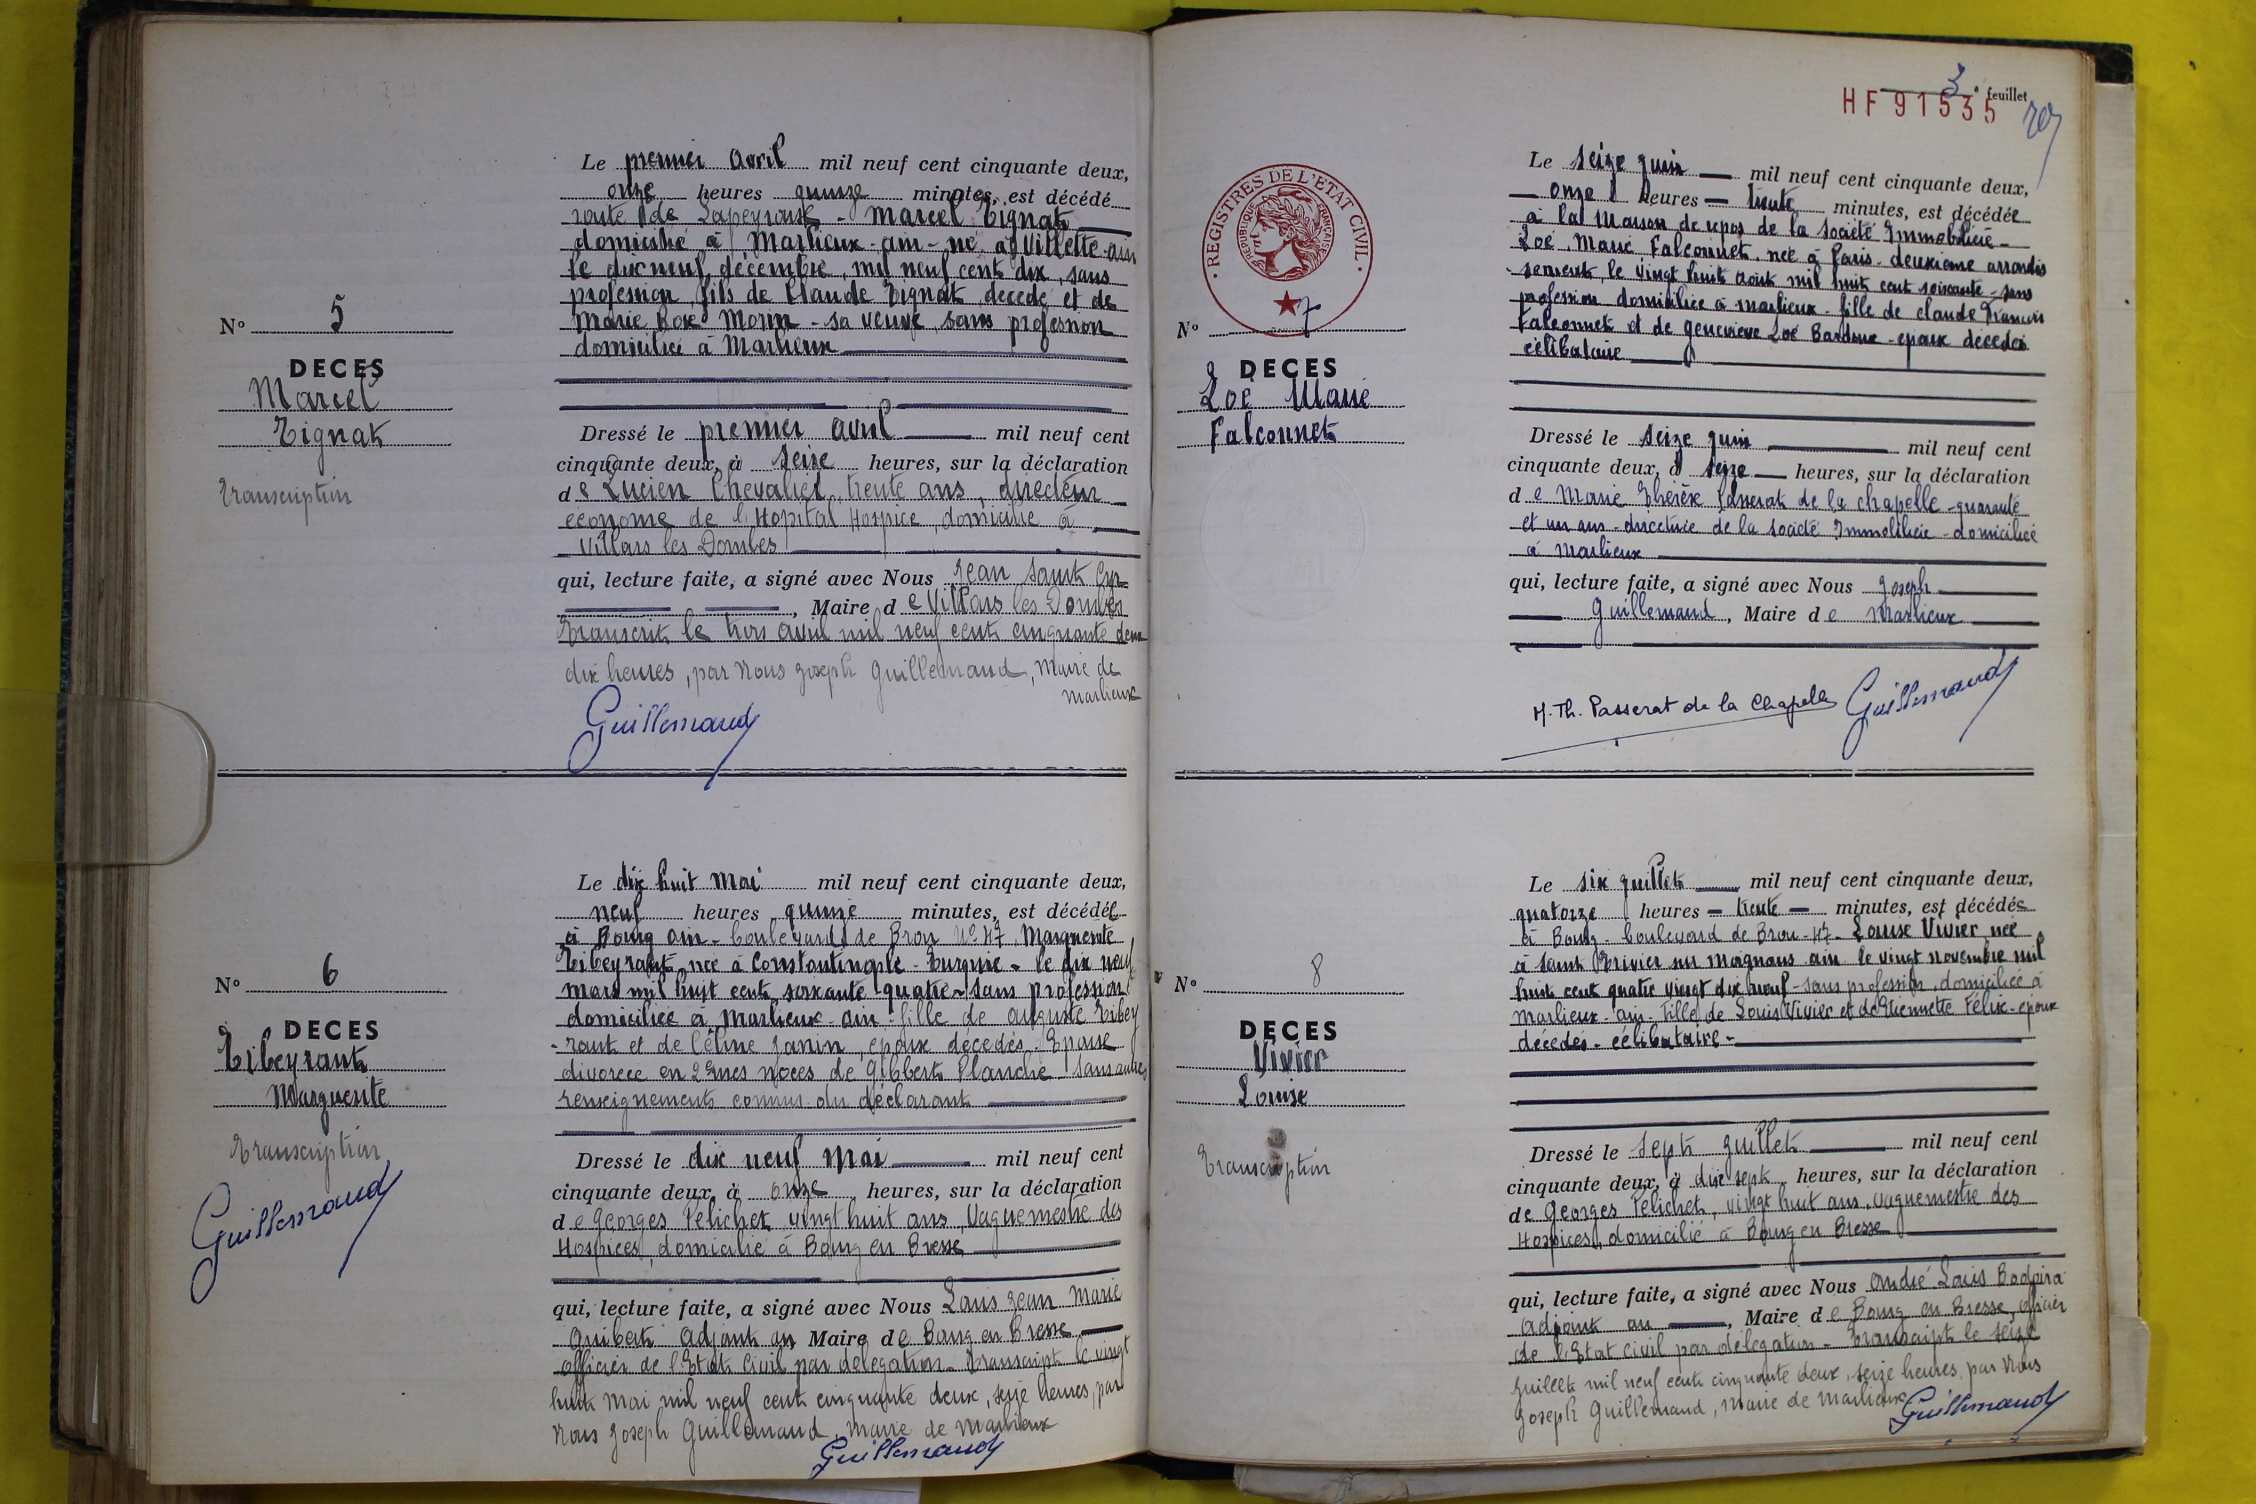 Le premier avril mil neuf cent cinquante deux,
onze heures quinze minutes, est décédé
route de Lapeyrouse - Marcel Tignat
domicilié à Marlieux - ain - né à Villette - ain
le dix neuf décembre, mil neuf cent dix, sans
profession, fils de Claude Tignat, décédé et de
Marie Rose Morin - sa veuve, sans profession
domiciliée à Marlieux
N° 5
DECES
Marcel
Tignat
Transcription
Dressé le premier avril mil neuf cent
cinquante deux, à seize heures, sur la déclaration
de Lucien Chevalier, trente ans, directeur
économe de l'Hopital Hospice, domicilié à
Villars les Dombes
qui, lecture faite, a signé avec Nous Jean Saint Cyr
, Maire de Villars les Dombes
Transcrit le trois avril mil neuf cent cinquante deux
dix heures, par Nous Joseph Guillemaud, Maire de
Marlieux
Guillemaud
Le dix huit Mai mil neuf cent cinquante deux,
neuf heures quinze minutes, est décédée
à Bourg ain - boulevard de Brou N° 47, Marguerite
Tibeyrant, née à Constantinople - Turquie - le dix neuf
mars mil huit cent soixante quatre - sans profession
domiciliée à Marlieux - ain - fille de Auguste Tibey
- rant et de Céline Janin, époux décédés - Epouse
divorcée en 2èmes noces de Gilbert Planche - sans autres
renseignements connus du déclarant
N° 6
DECES
Tibeyrant
Marguerite
Transcription
Guillemaud
Dressé le dix neuf Mai mil neuf cent
cinquante deux, à onze heures, sur la déclaration
de Georges Pelichet, vingt huit ans, Vaguemestre des
Hospices, domicilié à Bourg en Bresse
qui, lecture faite, a signé avec Nous Louis Jean Marie
Guibert adjoint au Maire de Bourg en Bresse
officier de l'Etat Civil par délégation - Transcript le vingt
huit mai mil neuf cent cinquante deux, seize heures, par
Nous Joseph Guillemaud, Maire de Marlieux
Guillemaud
3e feuillet
HF 91535
REGISTRES DE L'ETAT CIVIL
REPUBLIQUE FRANÇAISE
Le seize juin mil neuf cent cinquante deux,
onze heures trente minutes, est décédée
à la Maison de repos de la Société Immobilière -
Zoé, Marie Falconnet, née à Paris - deuxième arrondis
- sement, le vingt huit août mil huit cent soixante - sans
profession domiciliée à Marlieux - fille de Claude François
Falconnet et de Geneviève Zoé - époux décédés
célibataire
N° 7
DECES
Zoé Marie
Falconnet
Dressé le seize juin mil neuf cent
cinquante deux, à seize heures, sur la déclaration
de Marie Thérèse Passerat de la Chapelle - quarante
et un ans - directrice de la société Immobilière - domiciliée
à Marlieux
qui, lecture faite, a signé avec Nous Joseph
Guillemaud, Maire de Marlieux
M. Th. Passerat de la Chapelle Guillemaud
Le six juillet mil neuf cent cinquante deux,
quatorze heures - trente - minutes, est décédée
à Bourg - boulevard de Brou - 47 - Louise Vivier, née
à Saint Trivier sur Moignans ain le vingt novembre mil
huit cent quatre vingt dix neuf - sans profession, domiciliée à
Marlieux - ain - fille de Louis Vivier et de Etiennette Félix - époux
décédés - célibataire -
N° 8
DECES
Vivier
Louise
Transcription
Dressé le sept juillet mil neuf cent
cinquante deux, à dix sept heures, sur la déclaration
de Georges Pelichet, vingt huit ans, vaguemestre des
Hospices, domicilié à Bourg en Bresse
qui, lecture faite, a signé avec Nous André Louis
adjoint au, Maire de Bourg en Bresse, officier
de l'Etat civil par délégation - Transcript le seize
Juillet mil neuf cent cinquante deux, seize heures, par Nous
Joseph Guillemaud, Maire de Marlieux
Guillemaud